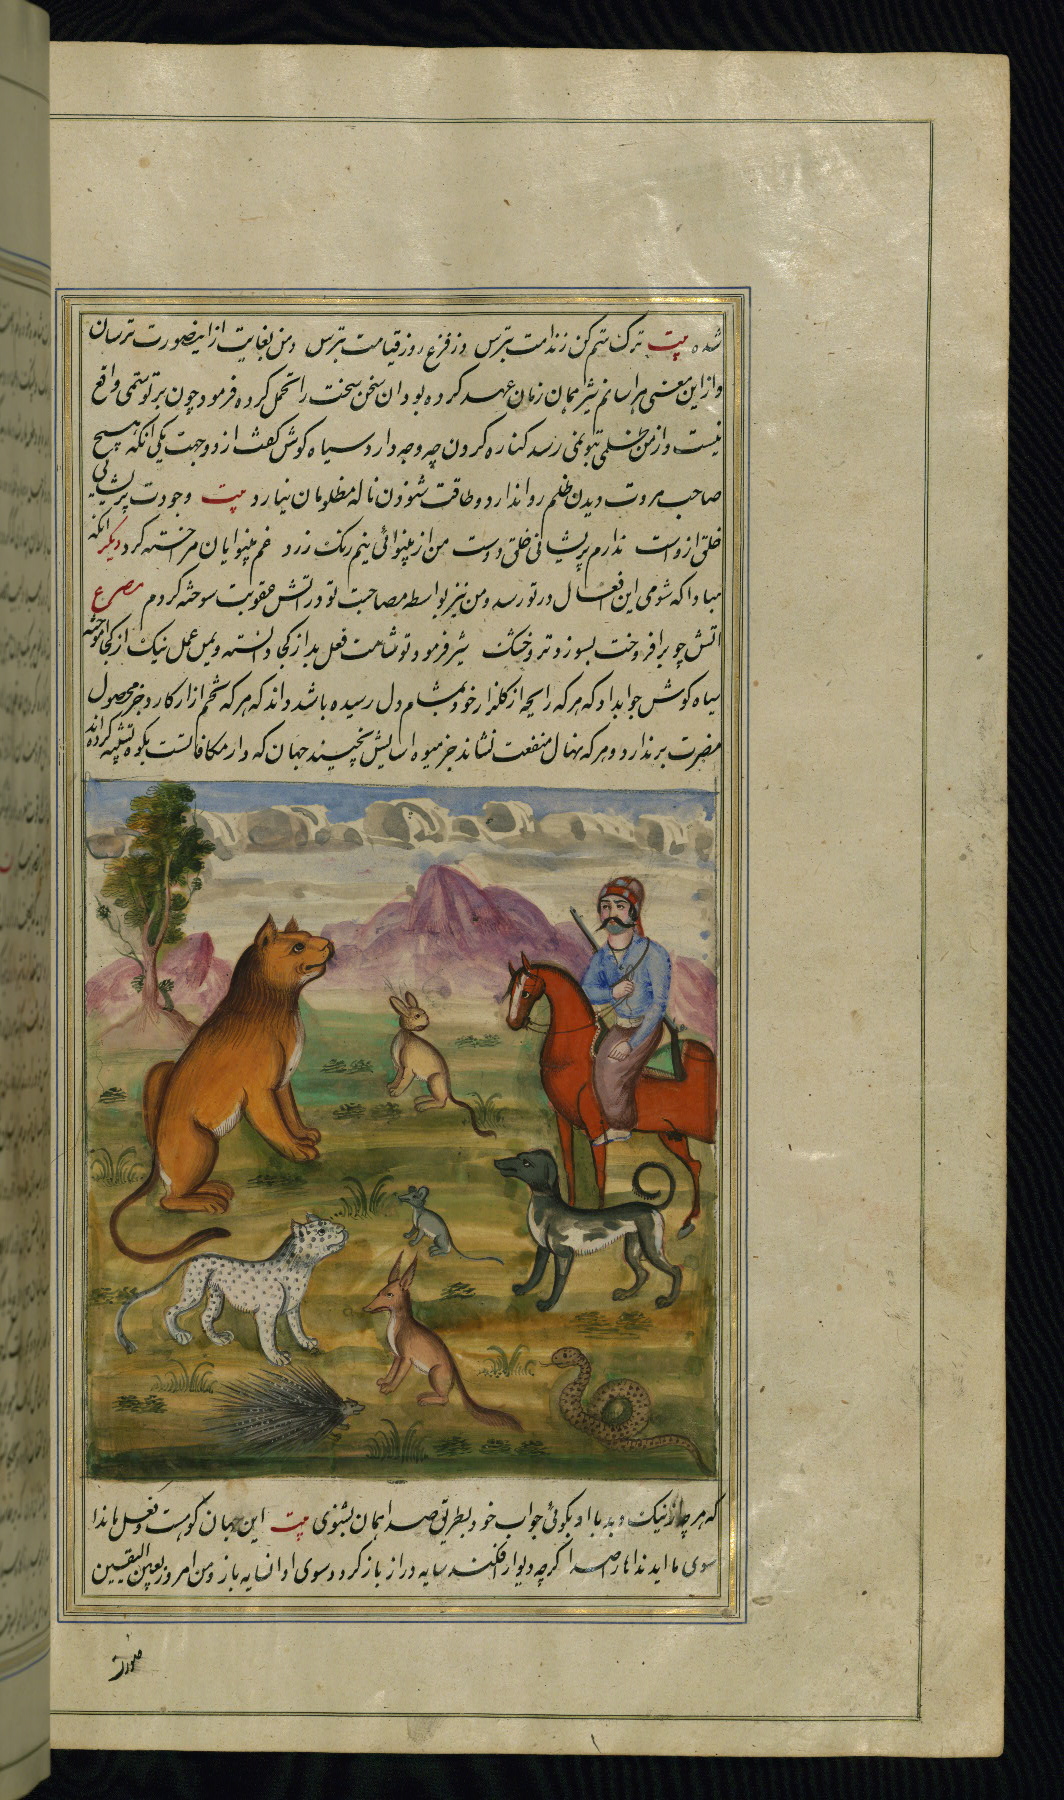 شده بیت ترک ستم کن زندامت بترس وز فزع روز قیامت بترس ومن بغایت از اینصورت ترسان
واز این معنی هراسانم شیر همان زمان عهد کرده بود ان سخن سخت را تحمل کرده فرمود چون بر تو ستمی واقع
نیست واز من ظلمی بتو نمی رسد کناره کردن چه وجه دارد سیاه کوش کفت از دو جهت یکی انکه هیچ
صاحب مروت دیدن ظلم روا ندارد وطاقت شنودن ناله مظلومان نیارد بیت وجودت پریشانی
خلق از وست ندارم پریشانی خلق دوست من از بینوائی نیم رنک زرد غم بینوایان مرا خسته کرد دیکر انکه
مبادا که شومی این افعال در تو رسد ومن نیز بواسطه مصاحبت تو در اتش عقوبت سوخته کردم مصرع
اتش چو برافروخت بسوزد تر و خشک شیر فرمود تو شامت فعل بد از کجا دانسته ویمن عمل نیک از کجا اموخته
سیاه کوش جواب داد که هر که رایحه از کلزار خرد بمشام دل رسیده باشد داند که هر که تخم ازار کارد جز محصول
مضرت بر ندارد وهر که نهال منفعت نشاند جز میوه اسایش نچیند جهان که دار مکافاتست بکوه تشبیه کرده اند
که هر چه از نیک وبد با او بکوئی جواب خود بطریق صدا همان بشنوی بیت این جهان کوهست وفعل ما ندا
سوی ما اید نداها را صدا کرچه دیوار افکند سایه دراز باز کردد سوی او ان سایه باز ومن امروز بعین الیقین